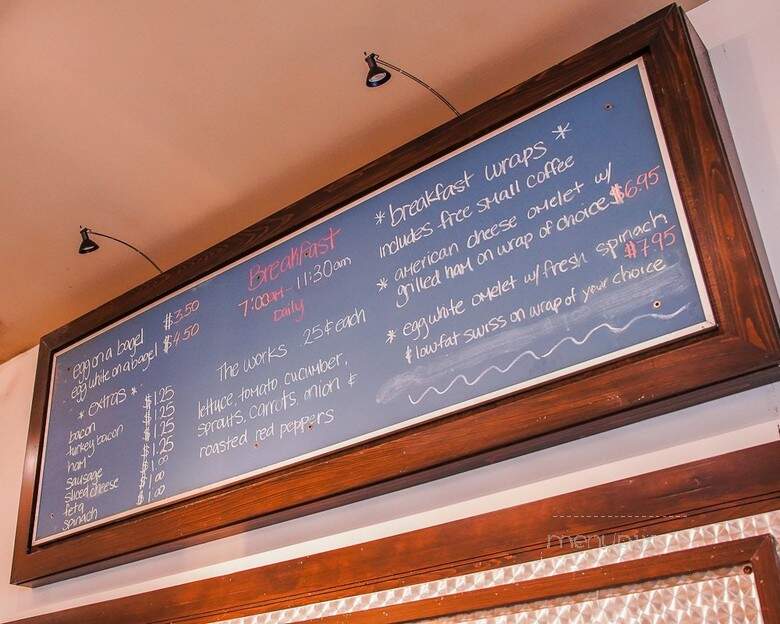 egg on a bagel $3.50
egg white on a bagel $4.50
* extras *
bacon $1.25
turkey bacon $1.25
ham $1.25
sausage $1.25
sliced cheese $1.00
feta $1.00
spinach $1.00
Breakfast
7:00am - 11:30am
Daily
The works 25¢ each
lettuce, tomato, cucumber,
sprouts, carrots, onion &
roasted red peppers
* breakfast wraps *
includes free small coffee
* american cheese omelet w/
grilled ham on wrap of choice $6.95
* egg white omelet w/ fresh spinach
& lowfat swiss on wrap of your choice $7.95
menupix